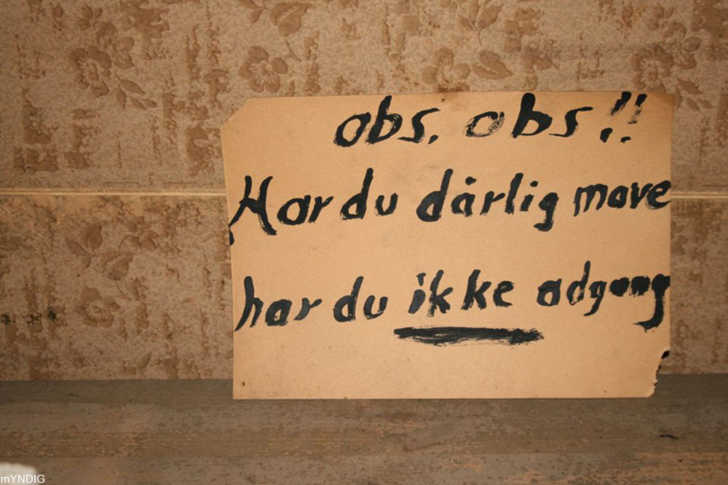 obs. obs!!
Har du dårlig mave
har du ikke adgang
mYNDIG